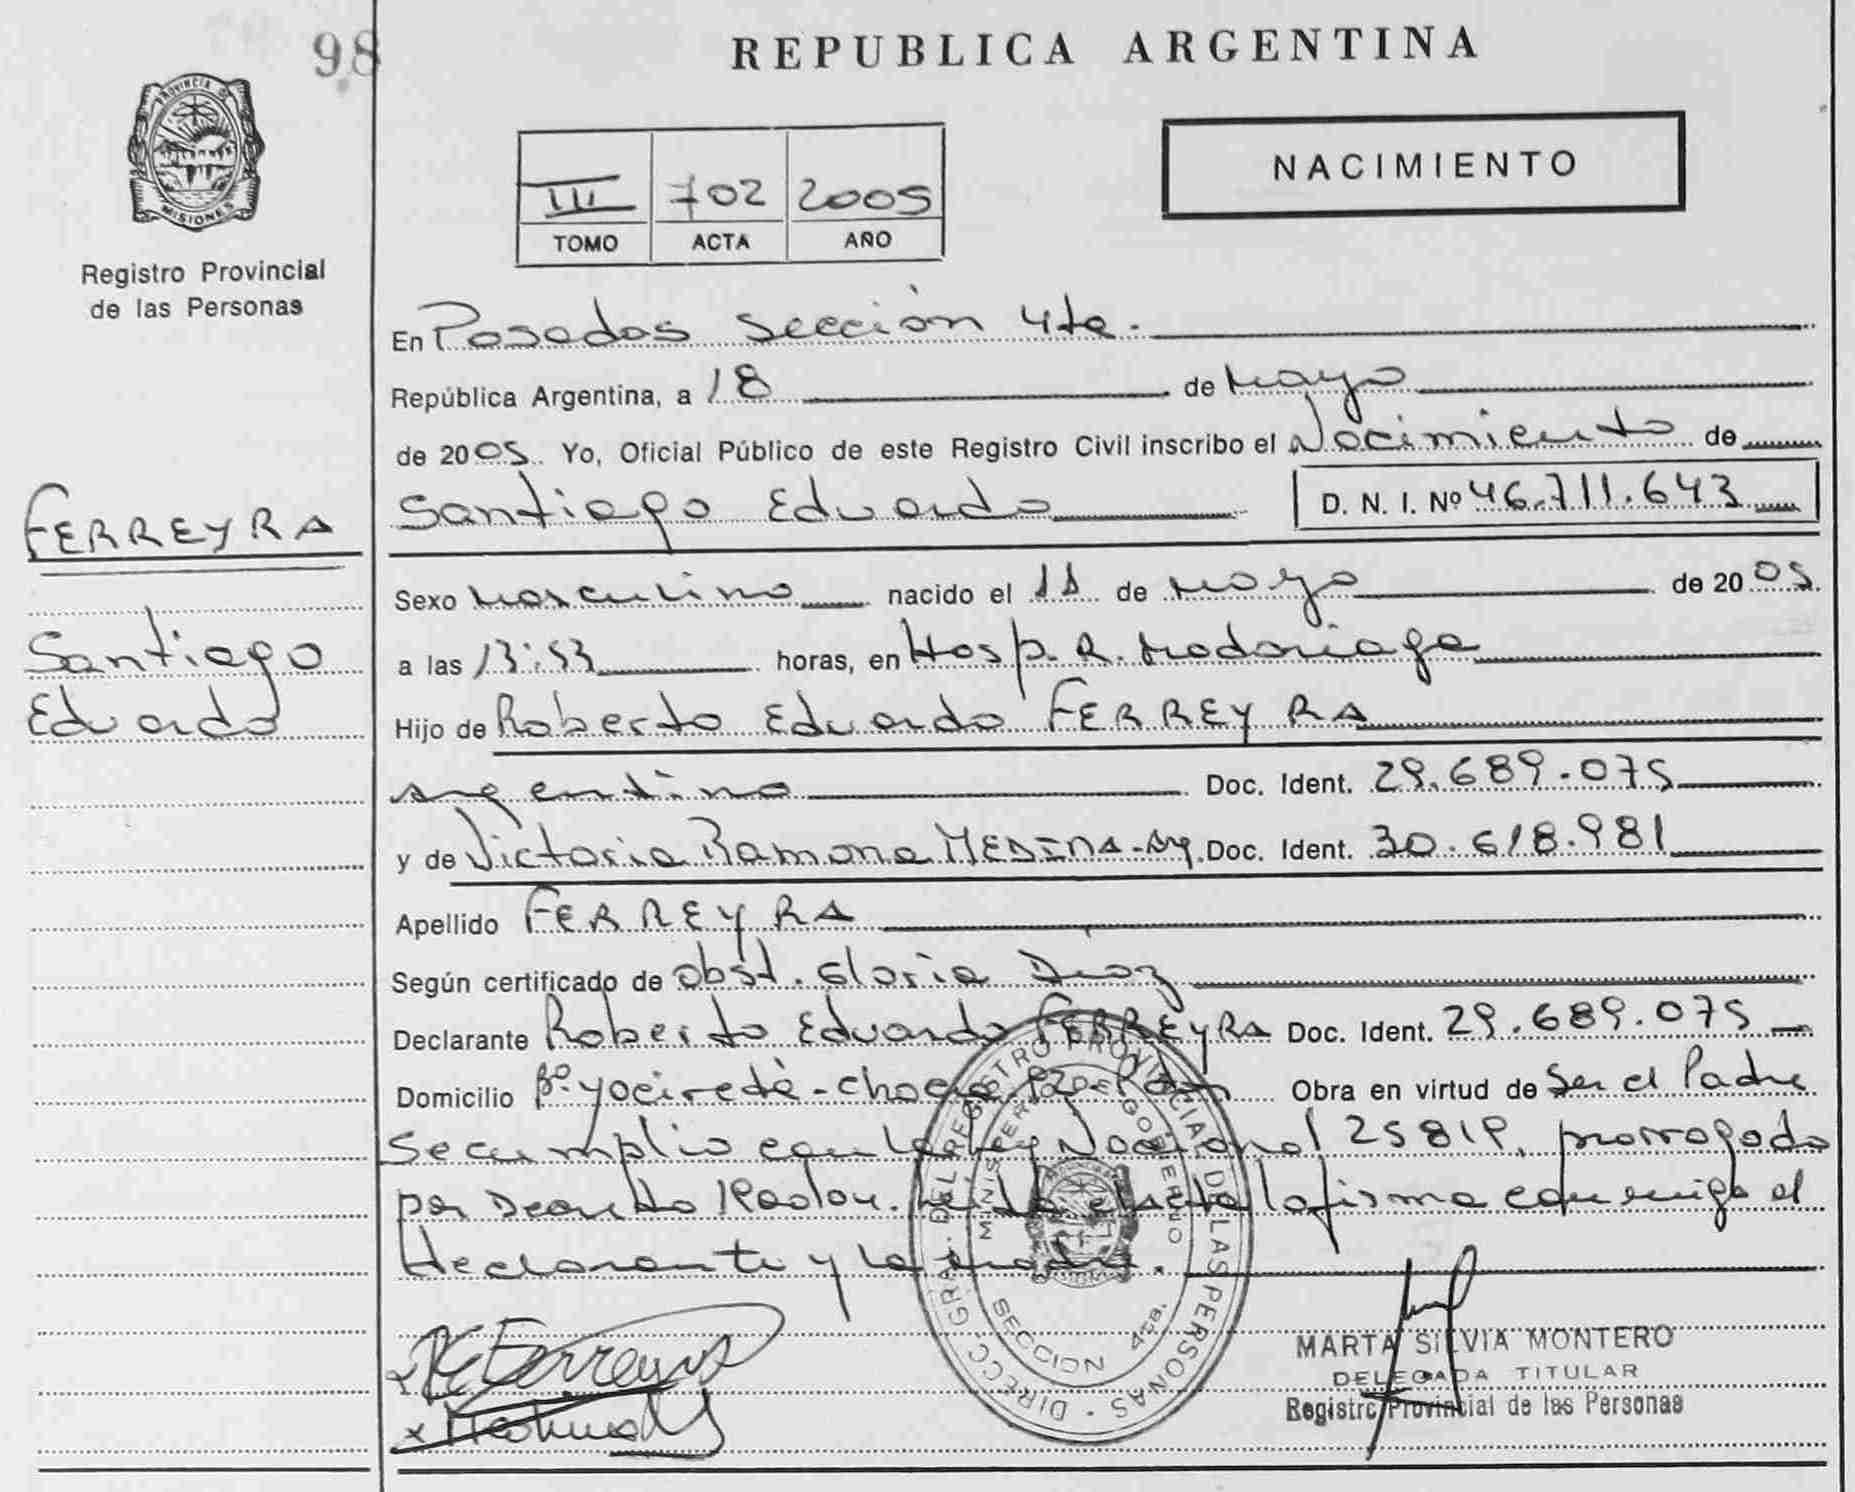 98
REPUBLICA ARGENTINA
PROVINCIA DE MISIONES
Registro Provincial
de las Personas
NACIMIENTO
III 702 2005
TOMO ACTA AÑO
En Posadas Sección 4ta.
República Argentina, a 18 de Mayo
de 2005. Yo, Oficial Público de este Registro Civil inscribo el Nacimiento de
FERREYRA
Santiago Eduardo D. N. I. Nº 46.711.643
Sexo Masculino nacido el 11 de Mayo de 2005.
Santiago
a las 13:53 horas, en Hosp. R. Madariaga
Eduardo
Hijo de Roberto Eduardo FERREYRA
argentino Doc. Ident. 29.689.075
y de Victoria Ramona MEDINA-Arg. Doc. Ident. 30.618.981
Apellido FERREYRA
Según certificado de obst. Gloria Diaz
Declarante Roberto Eduardo FERREYRA Doc. Ident. 29.689.075
Domicilio Bº. Yaciretá - Obra en virtud de Ser el Padre
Se cumplio con la Ley Nacional 25819, prorrogada
por Decreto el acta la firma conmigo el
declarante y la madre.
DIRECC. GRAL. DEL REGISTRO PROVINCIAL DE LAS PERSONAS
MINISTERIO GOBIERNO
SECCION 4ta.
MARTA SILVIA MONTERO
DELEGADA TITULAR
Registro Provincial de las Personas